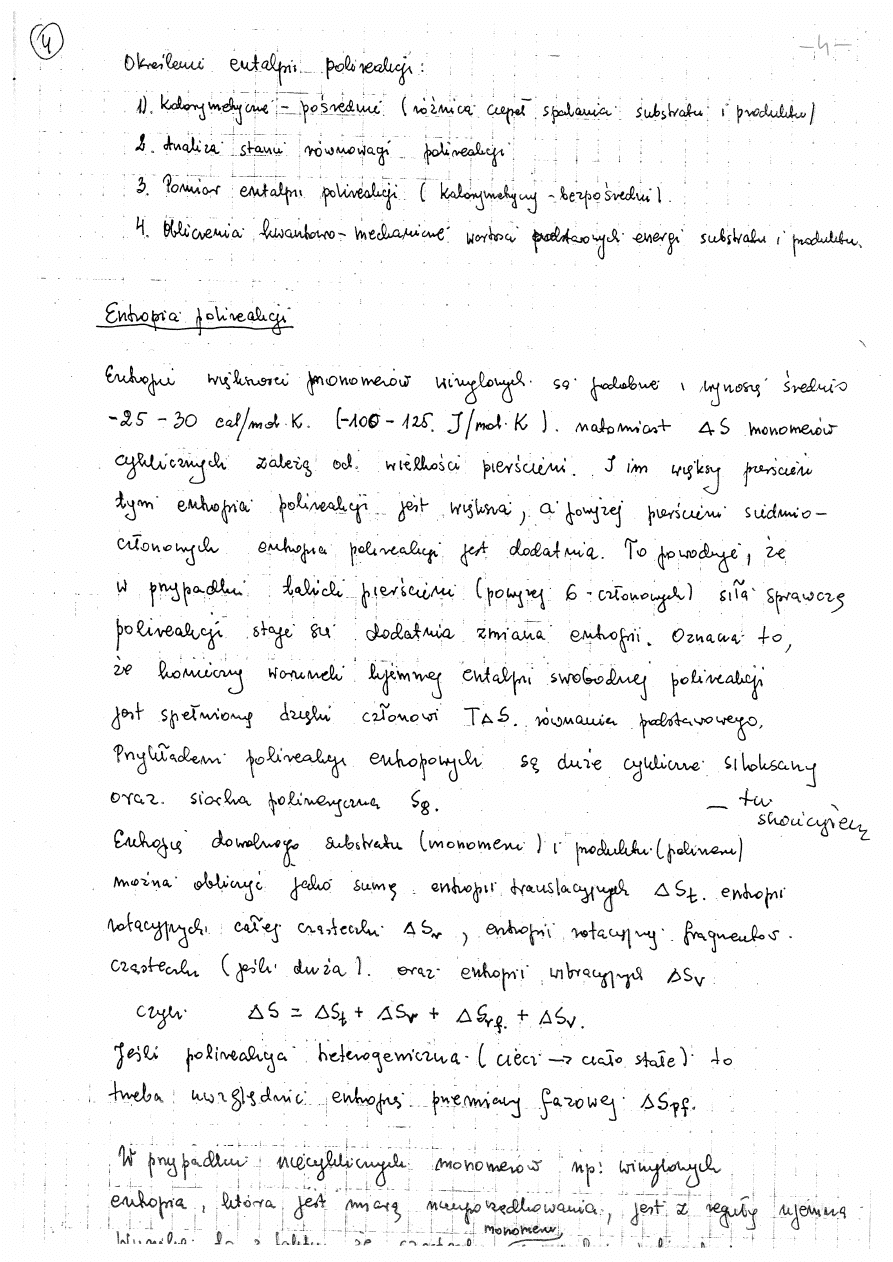 4
-4-
Określenie entalpii polireakcji:
1). Kalorymetryczne - pośrednie (różnica ciepeł spalania substratu i produktu)
2. Analiza stanu równowagi polireakcji
3. Pomiar entalpii polireakcji (kalorymetryczny - bezpośredni).
4. Obliczenia kwantowo-mechaniczne wartości podstawowych energii substratu i produktu.
Entropia polireakcji
Entropie większości monomerów winylowych są podobne i wynoszą średnio
-25 - 30 cal/mol·K. (-100 - 125. J/mol·K). natomiast ΔS monomerów
cyklicznych zależą od wielkości pierścieni. I im większy pierścień
tym entropia polireakcji jest większa, a powyżej pierścieni siedmio-
członowych entropia polireakcji jest dodatnia. To powoduje, że
w przypadku takich pierścieni (powyżej 6-członowych) siłą sprawczą
polireakcji staje się dodatnia zmiana entropii. Oznacza to,
że konieczny warunek ujemnej entalpii swobodnej polireakcji
jest spełniony dzięki członowi TΔS. równania podstawowego.
Przykładem polireakcji entropowych są duże cykliczne siloksany
oraz siarka polimeryczna S8.
— tu
skończyłem
Entropię dowolnego substratu (monomeru) i produktu (polimeru)
można obliczyć jako sumę entropii translacyjnych ΔSt. entropii
rotacyjnych całej cząsteczki ΔSr, entropii rotacyjny fragmentów
cząsteczki (jeśli duża). oraz entropii wibracyjnych ΔSv
czyli ΔS = ΔSt + ΔSr + ΔSrf. + ΔSv.
Jeśli polireakcja heterogeniczna (ciecz → ciało stałe) to
trzeba uwzględnić entropię przemiany fazowej ΔSpf.
W przypadku niecyklicznych monomerów np: winylowych
entropia, która jest miarą nieuporządkowania, jest z reguły ujemna
monomeru,